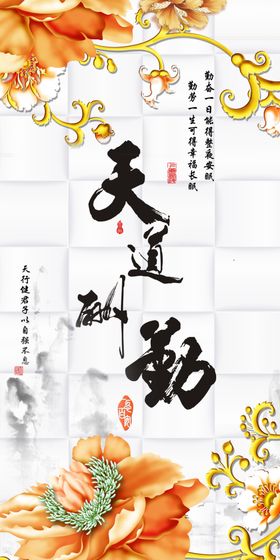 勤奋一日能得整夜安眠
勤劳一生可得幸福长眠
天道酬勤
天行健君子以自强不息